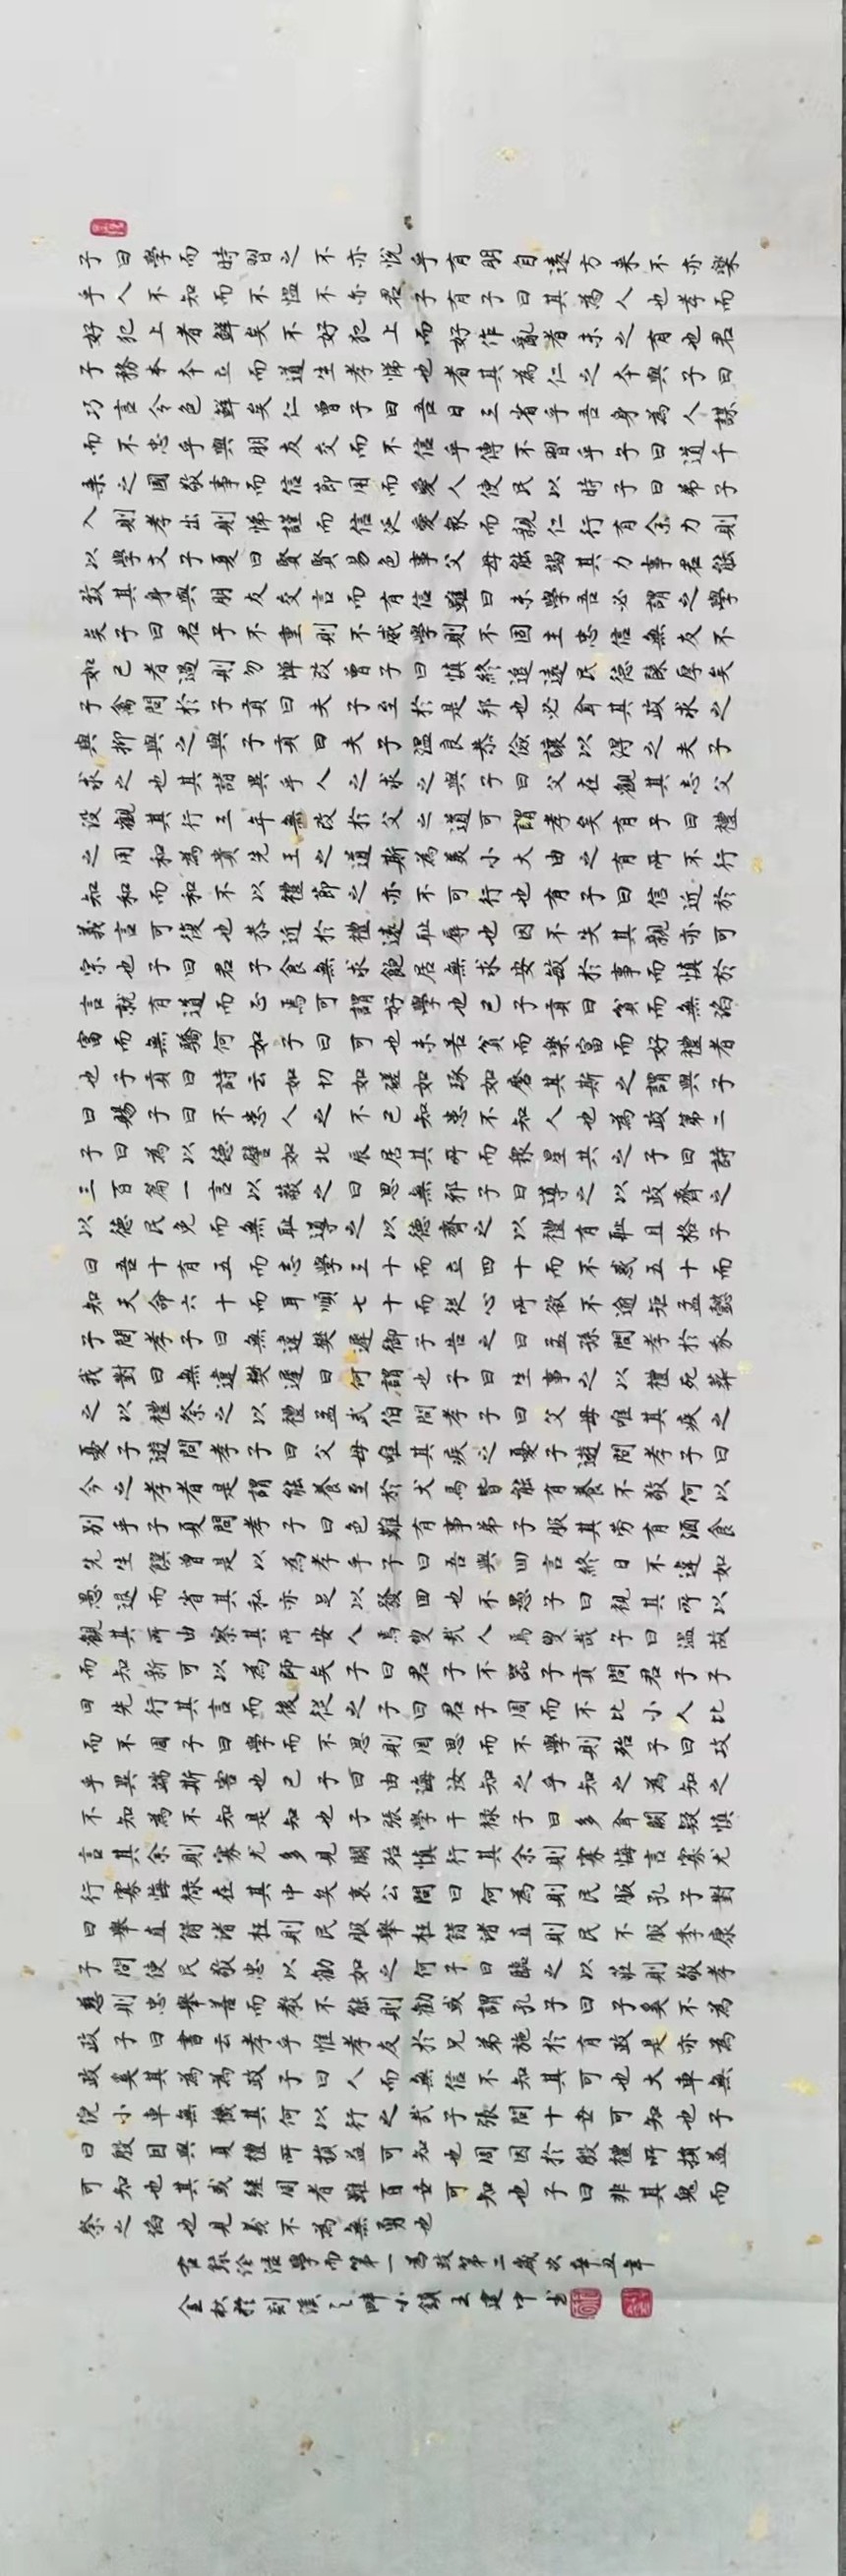 子曰學而時習之不亦悅乎有朋自遠方来不亦樂
乎人不知而不愠不亦君子有子曰其為人也孝而
好犯上者鮮矣不好犯上而好作亂者未之有也君
子務本本立而道生孝悌也者其為仁之本與子曰
巧言令色鮮矣仁曾子曰吾日三省乎吾身為人謀
而不忠乎與朋友交而不信乎傳不習乎子曰道千
乘之國敬事而信節用而愛人使民以時子曰弟子
入則孝出則悌謹而信泛愛眾而親仁行有余力則
以學文子夏曰賢賢易色事父母能竭其力事君能
致其身與朋友交言而有信雖曰未學吾必謂之學
矣子曰君子不重則不威學則不固主忠信無友不
如己者過則勿憚改曾子曰慎終追遠民德歸厚矣
子禽問於子貢曰夫子至於是邦也必聞其政求之
與抑與之與子貢曰夫子溫良恭儉讓以得之夫子
求之也其諸異乎人之求之與子曰父在觀其志父
沒觀其行三年無改於父之道可謂孝矣有子曰禮
之用和為貴先王之道斯為美小大由之有所不行
知和而和不以禮節之亦不可行也有子曰信近於
義言可復也恭近於禮遠恥辱也因不失其親亦可
宗也子曰君子食無求飽居無求安敏於事而慎於
言就有道而正焉可謂好學也已子貢曰貧而無諂
富而無驕何如子曰可也未若貧而樂富而好禮者
也子貢曰詩云如切如磋如琢如磨其斯之謂與子
曰賜子曰不患人之不己知患不知人也為政第二
子曰為以德譬如北辰居其所而眾星共之子曰詩
三百篇一言以蔽之曰思無邪子曰導之以政齊之
以德民免而無恥導之以德齊之以禮有恥且格子
曰吾十有五而志學三十而立四十而不惑五十而
知天命六十而耳順七十而從心所欲不逾矩孟懿
子問孝子曰無違樊遲御子告之曰孟孫問孝於
我對曰無違樊遲曰何謂也子曰生事之以禮死葬
之以禮祭之以禮孟武伯問孝子曰父母唯其疾之
憂子遊問孝子曰父母唯其疾之憂子遊問孝子曰
今之孝者是謂能養至於犬馬皆能有養不敬何以
別乎子夏問孝子曰色難有事弟子服其勞有酒食
先生饌曾是以為孝乎子曰吾與回言終日不違如
愚退而省其私亦足以發回也不愚子曰視其所以
觀其所由察其所安人焉叟哉人焉叟哉子曰溫故
而知新可以為師矣子曰君子不器子貢問君子子
曰先行其言而後從之子曰君子周而不比小人比
而不周子曰學而不思則罔思而不學則殆子曰攻
乎異端斯害也已子曰由誨汝知之乎知之為知之
不知為不知是知也子張學干祿子曰多聞闕疑慎
言其余則寡尤多見闕殆慎行其余則寡悔言寡尤
行寡悔祿在其中矣哀公問曰何為則民服孔子對
曰舉直錯諸枉則民服舉枉錯諸直則民不服季康
子問使民敬忠以勸如之何子曰臨之以莊則敬孝
慈則忠舉善而教不能則勸或謂孔子曰子奚不為
政子曰書云孝乎惟孝友於兄弟施於有政是亦為
政奚其為為政子曰人而無信不知其可也大車無
倪小車無機其何以行之哉子張問十世可知也子
曰殷因與夏禮所損益可知也周因於殷禮所損益
可知也其或繼周者雖百世可知也子曰非其鬼而
祭之諂也見義不為無勇也
右錄論語學而第一為政第二歲次辛丑年
金秋於剡溪之畔小鎮王建中書